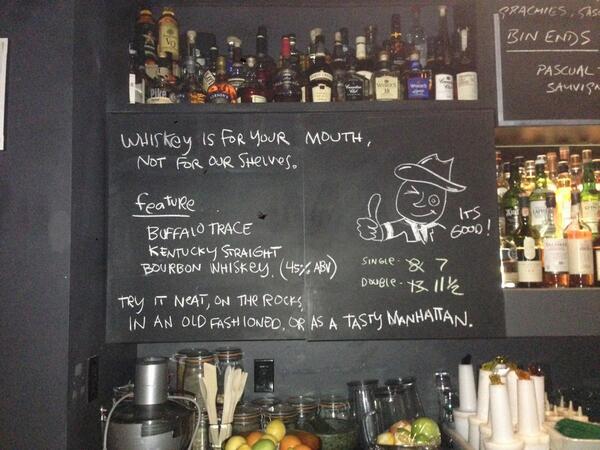 BIN ENDS
PASCUAL
WHISKEY IS FOR YOUR MOUTH,
NOT FOR OUR SHELVES.
feature
BUFFALO TRACE
KENTUCKY STRAIGHT
BOURBON WHISKEY. (45% ABV)
ITS
GOOD!
SINGLE - 8 7
DOUBLE - 13 11½
TRY IT NEAT, ON THE ROCKS,
IN AN OLD FASHIONED, OR AS A TASTY MANHATTAN.